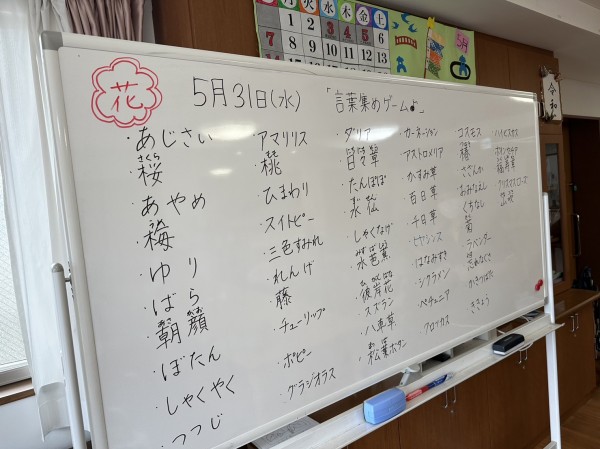 月火水木金土
1 2 3 4 5 6
8 9 10 11 12 13
5月
令和
花
5月31日(水)
「言葉集めゲーム♪」
・あじさい
さくら
・桜
・あやめ
・梅
・ゆり
・ばら
あさがお
・朝顔
・ぼたん
・しゃくやく
・つつじ
・アマリリス
もも
・桃
・ひまわり
・スイトピー
・三色すみれ
・れんげ
・藤
・チューリップ
・ポピー
・グラジオラス
・ダリア
・日々草
・たんぽぽ
・しゃくなげ
みずばしょう
・水芭蕉
ひがんばな
・彼岸花
・スズラン
・松葉ボタン
・カーネーション
・アストロメリア
・かすみ草
・百日草
・千日草
・ヒヤシンス
・はなみずき
・シクラメン
・ペチュニア
・クロッカス
・コスモス
・椿
・さざんか
・おみなえし
・くちなし
・菊
・ラベンダー
・忘れなぐさ
・かきつばた
・ききょう
・ハイビスカス
・ポインセチア
・福寿草
・クリスマスローズ